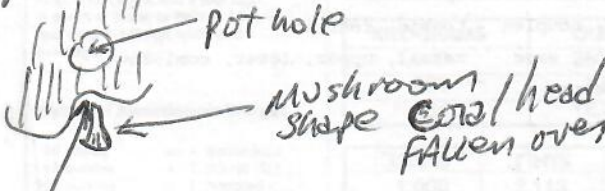 pot hole
Mushroom
shape Coral/head
FALLen over